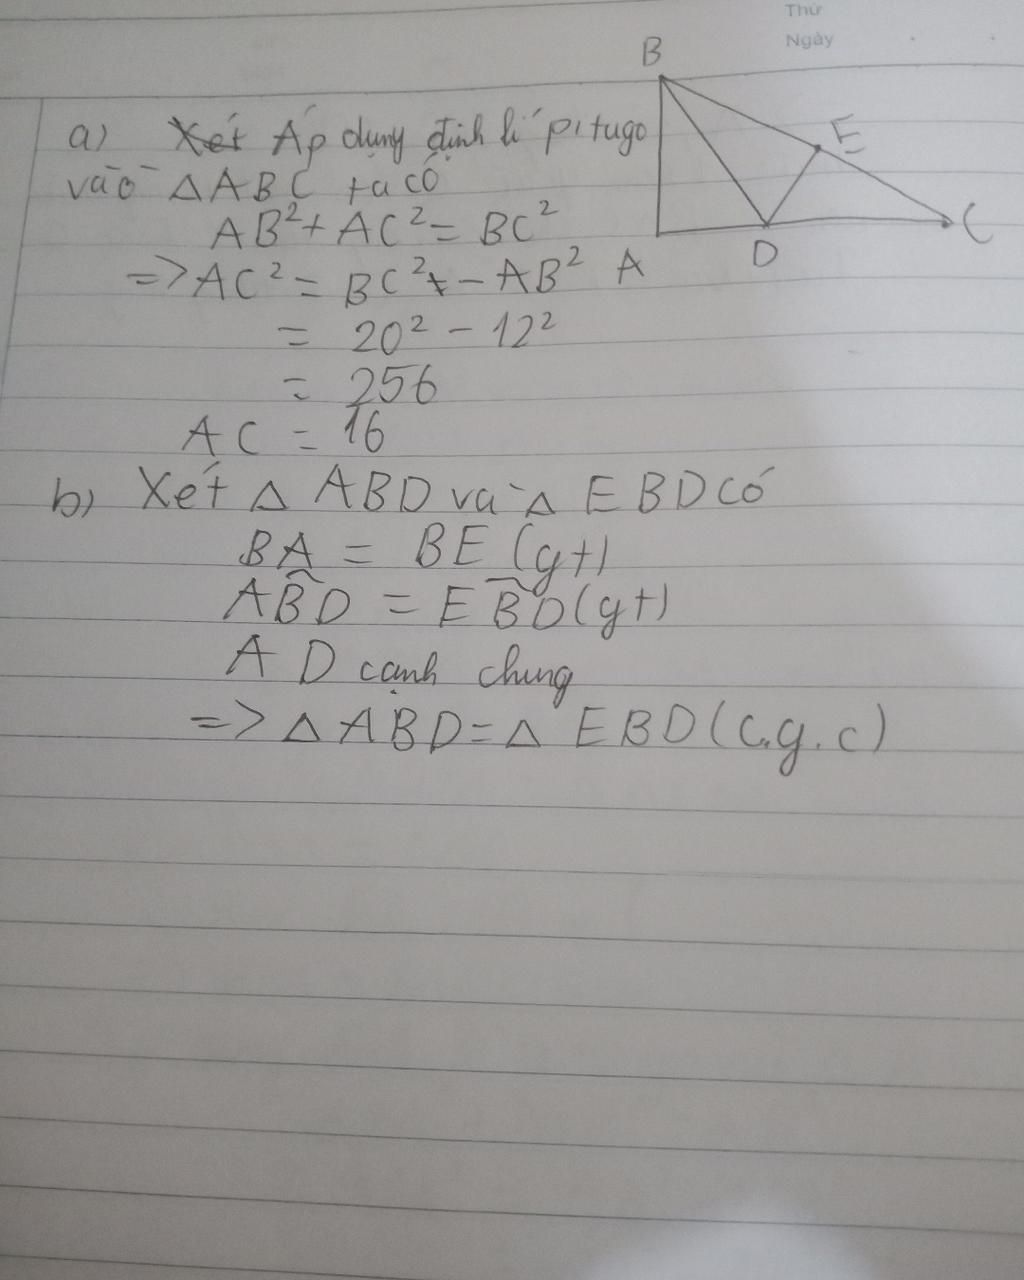 Thứ
Ngày
B
E
C
D
A
a) Xét Áp dụng định lí pitago
vào △ABC ta có
AB² + AC² = BC²
=> AC² = BC² - AB²
= 20² - 12²
= 256
AC = 16
b) Xét △ ABD và △ EBD có
BA = BE (gt)
AB̂D = EB̂D (gt)
AD cạnh chung
=> △ ABD = △ EBD (c.g.c)